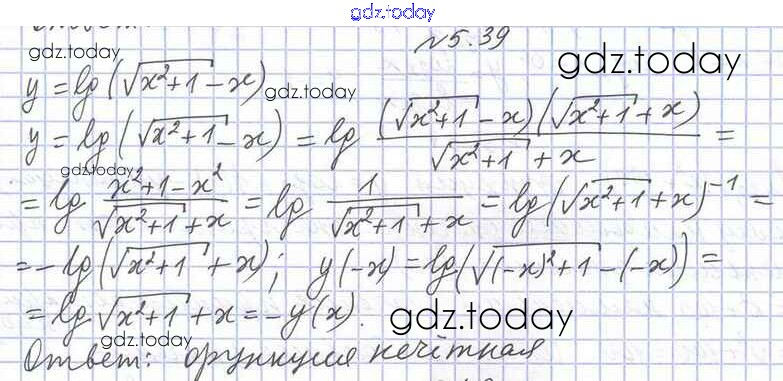 gdz.today
№5.39
gdz.today
gdz.today
y = lg(√(x²+1) - x)
gdz.today
y = lg(√(x²+1) - x) = lg ((√(x²+1) - x)(√(x²+1) + x))/(√(x²+1) + x) =
gdz.today
= lg (x²+1-x²)/(√(x²+1) + x) = lg 1/(√(x²+1) + x) = lg(√(x²+1) + x)⁻¹ =
= -lg(√(x²+1) + x); y(-x) = lg(√((-x)²+1) - (-x)) =
= lg √(x²+1) + x = -y(x).
gdz.today
gdz.today
Ответ: функция нечётная